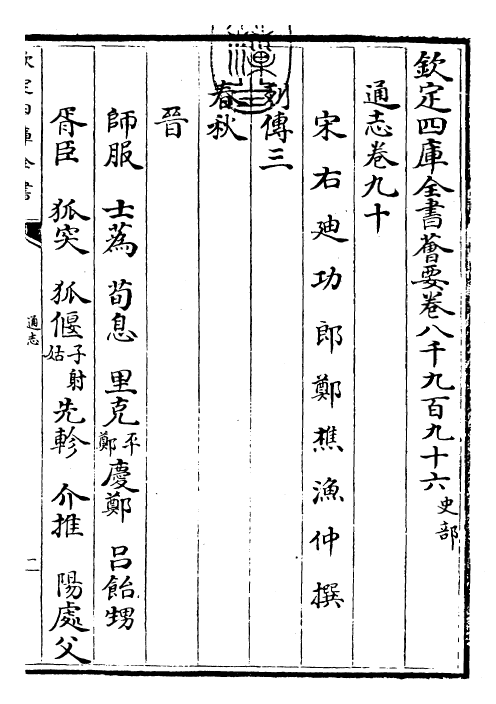 欽定四庫全書薈要卷八千九百九十六 史部
通志卷九十
宋右廸功郎鄭樵漁仲撰
列傳三
春秋
晉
師服 士蒍 荀息 里克 平鄭 慶鄭 呂飴甥
胥臣 狐突 狐偃 子射姑 先軫 介推 陽處父
欽定四庫全書
通志
一